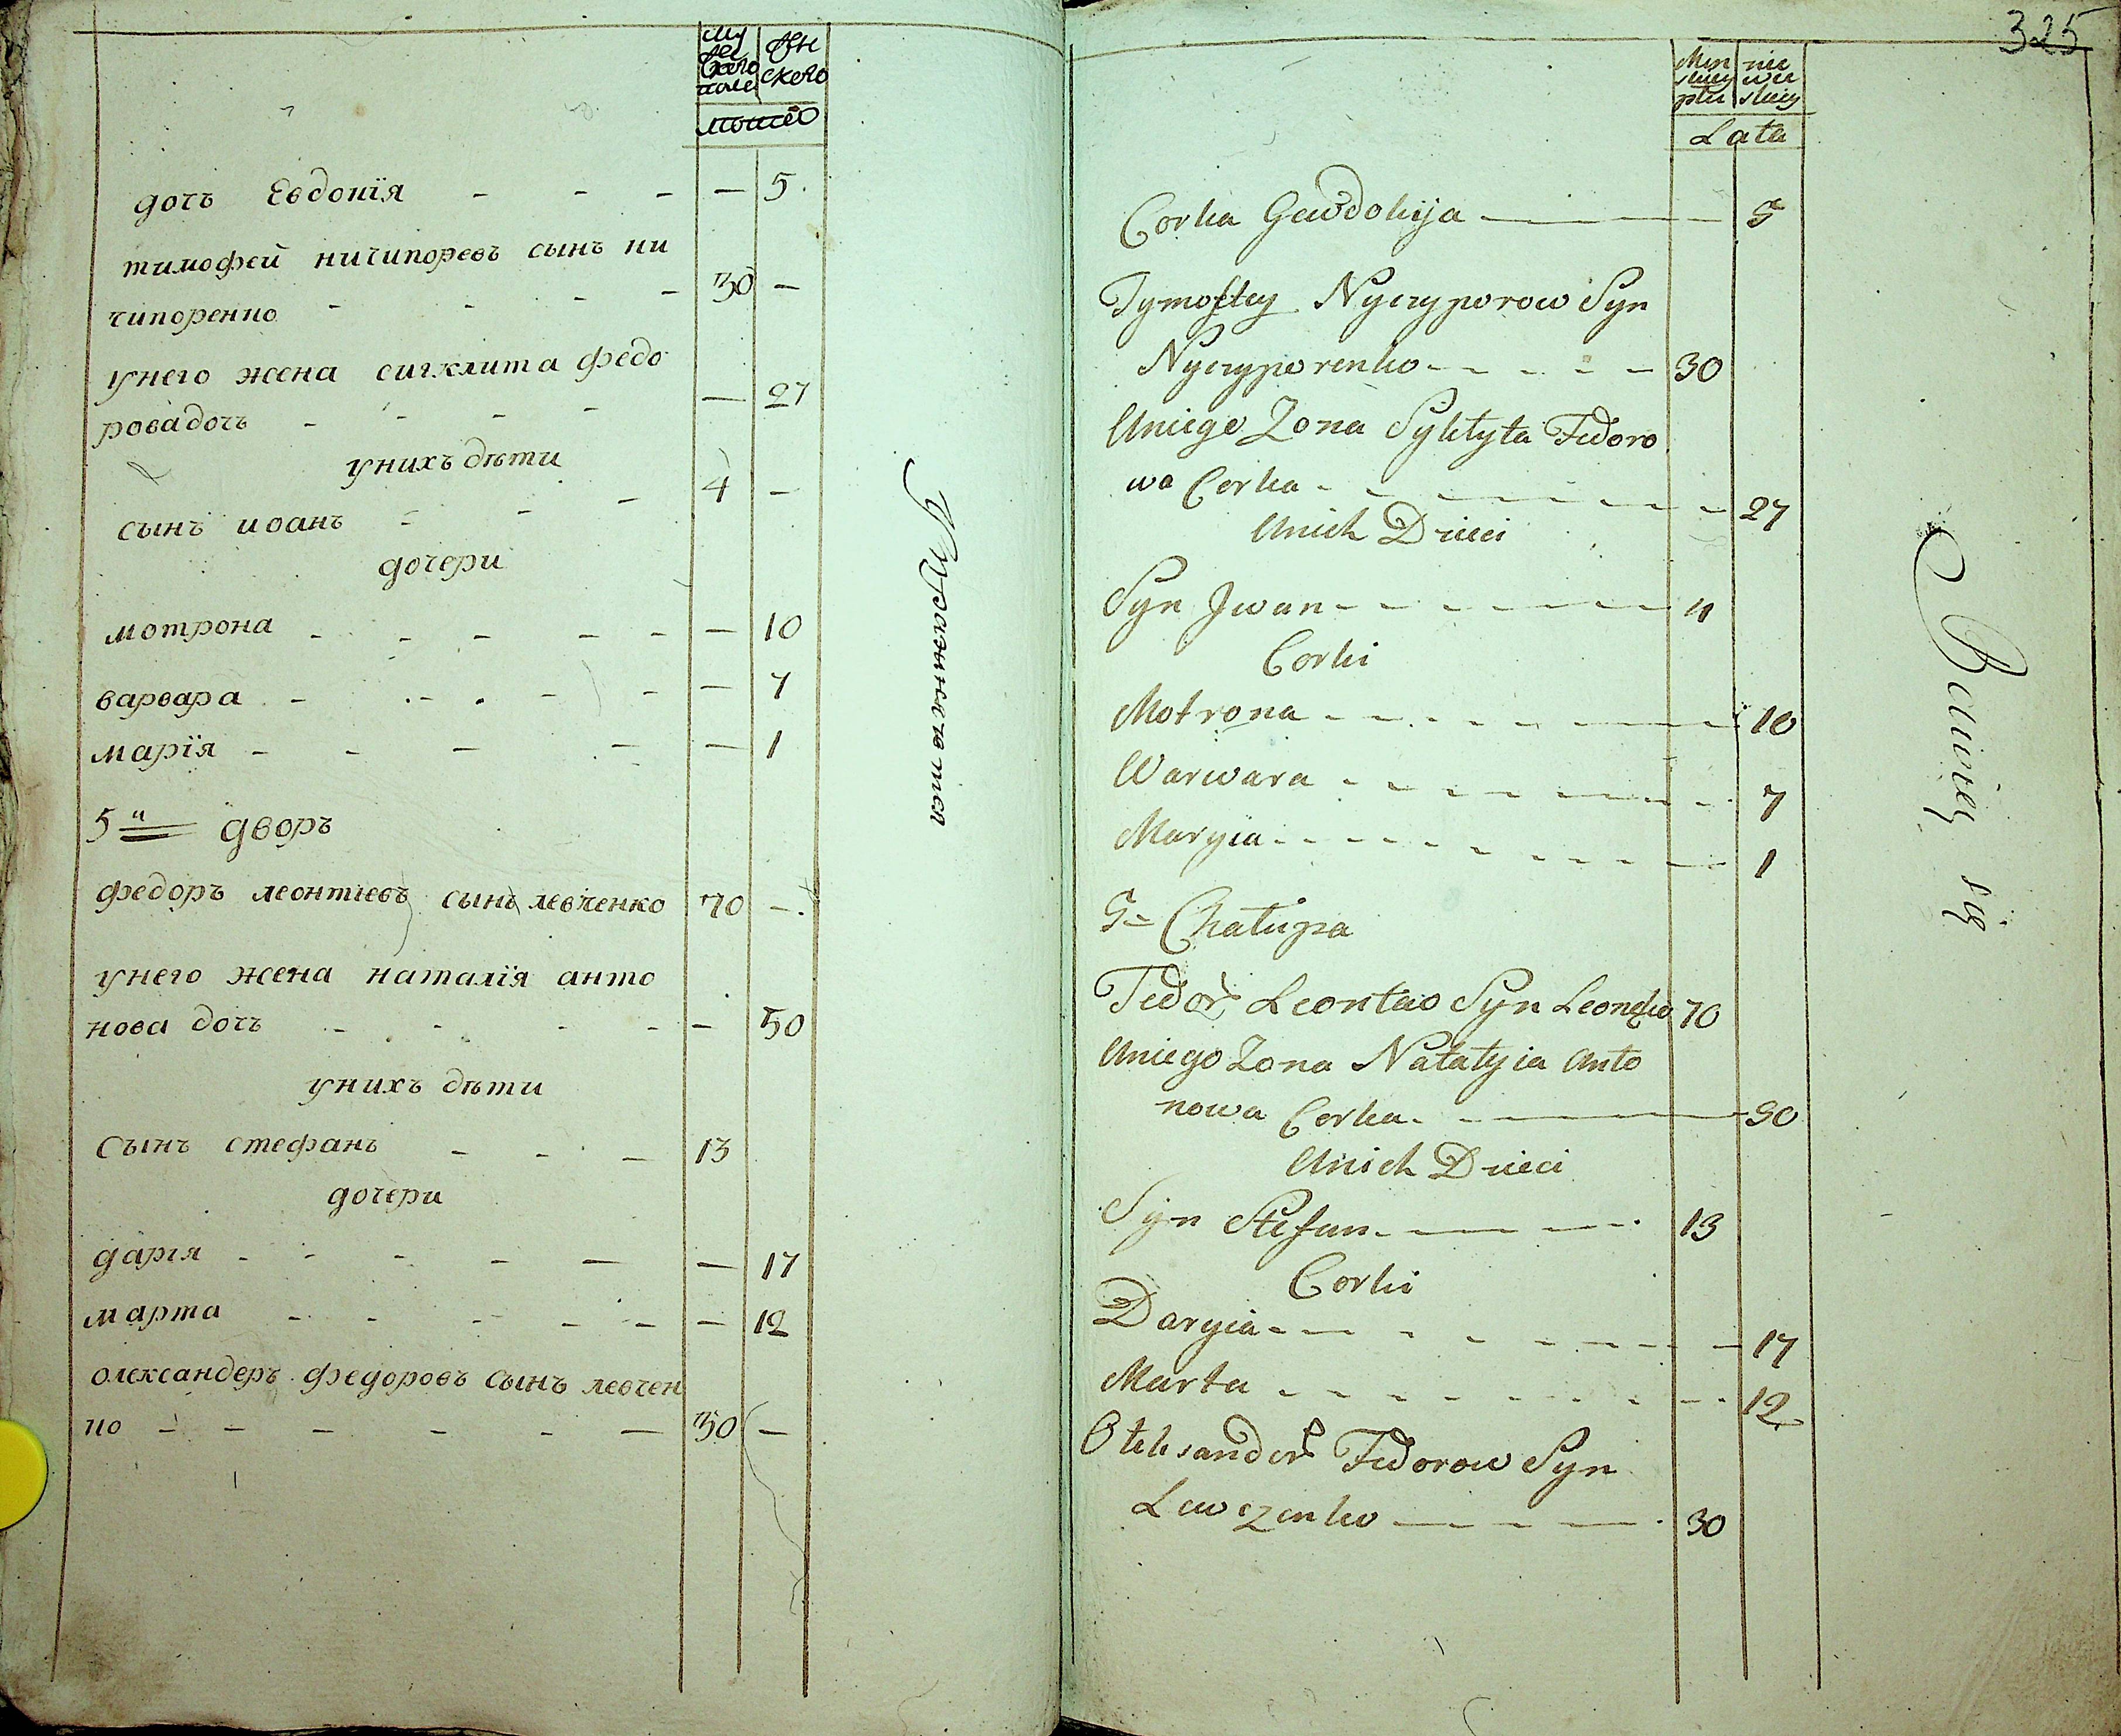 му же ског пола | жен ского
дочь Евдокїя - - - — 5.
тимофей ничипоровъ сынъ ни
чипоренко - - - - 30 —
унего жена сигклита федо
рова дочь - - - - — 27
унихъ дѣти
сынъ иоанъ - - - 4 —
дочери
мотрона - - - - - — 10
варвара - - - - - — 7
марїя - - - - — 1
5й дворъ
федоръ леонтіевъ сынъ левченко 70 -.
унего жена наталїя анто
нова дочь - - - - — 50
унихъ дѣти
сынъ стефанъ - - - 13
дочери
дарія - - - - - — 17
марта - - - - - — 12
олександеръ федоровъ сынъ левчен
ко - - - - - - 30 —
Упражняется
325
Lata
Corka Gewdokija — 5
Tymoftey Nyczyporow Syn
Nyczyporenko - - - - - 30
Uniego Zona Syklyta Fedoro
wa Corka - - - - - 27
Unich Dzieci
Syn Jwan - - - - - - 4
Corki
Motrona - - - - - 10
Warwara - - - - - 7
Maryia - - - - - 1
5= Chałupa
Fedor Leontao Syn 70
Uniego Zona Natalyia Anto
nowa Corka. - — 50
Unich Dzieci
Syn Stefan - — - - 13
Corki
Daryia - - - - - 17
Marta - - - - - 12
Oleksander Fedorow Syn
Lewczenko — - - — 30
Bawięy się